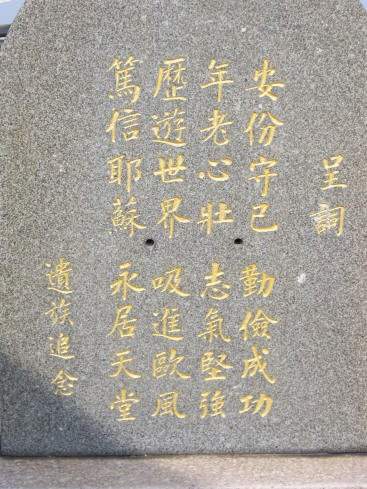 呈詞
安份守己 勤儉成功
年老心壯 志氣堅強
歷遊世界 吸進歐風
篤信耶蘇 永居天堂
遺族追念